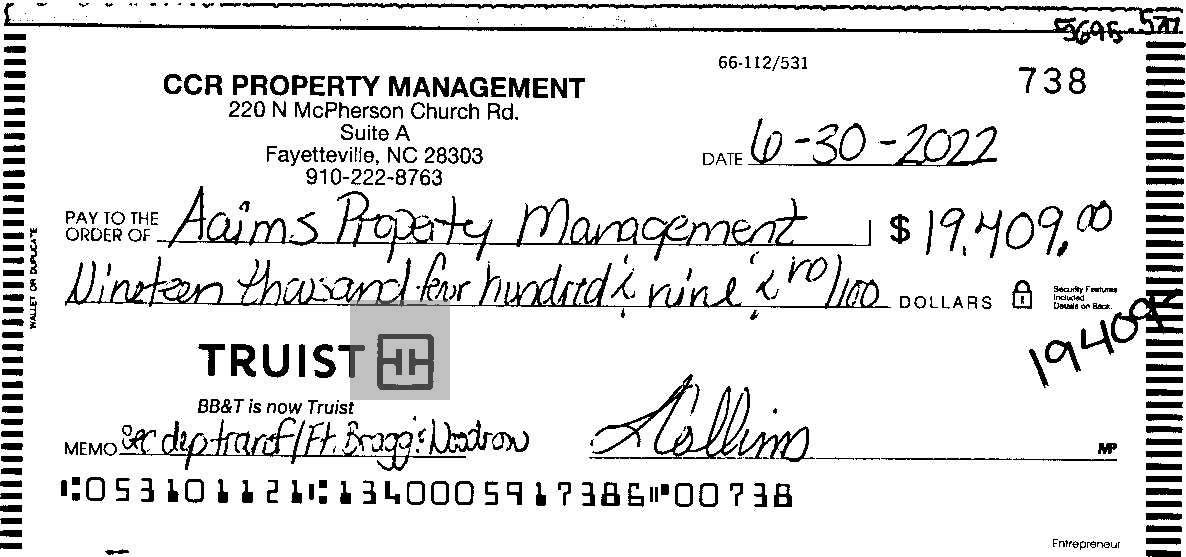 5695.577
66-112/531
738
CCR PROPERTY MANAGEMENT
220 N McPherson Church Rd.
Suite A
Fayetteville, NC 28303
910-222-8763
DATE 6-30-2022
PAY TO THE ORDER OF Aaims Property Management $ 19,409.00
Nineteen thousand four hundred & nine & no/100 DOLLARS
Security Features Included. Details on Back.
19409
WALLET OR DUPLICATE
TRUIST
BB&T is now Truist
MEMO sec dep transf/Ft. Bragg & Woodrow
Collins
MP
⑆053101121⑆1340005917386⑈00738
Entrepreneur